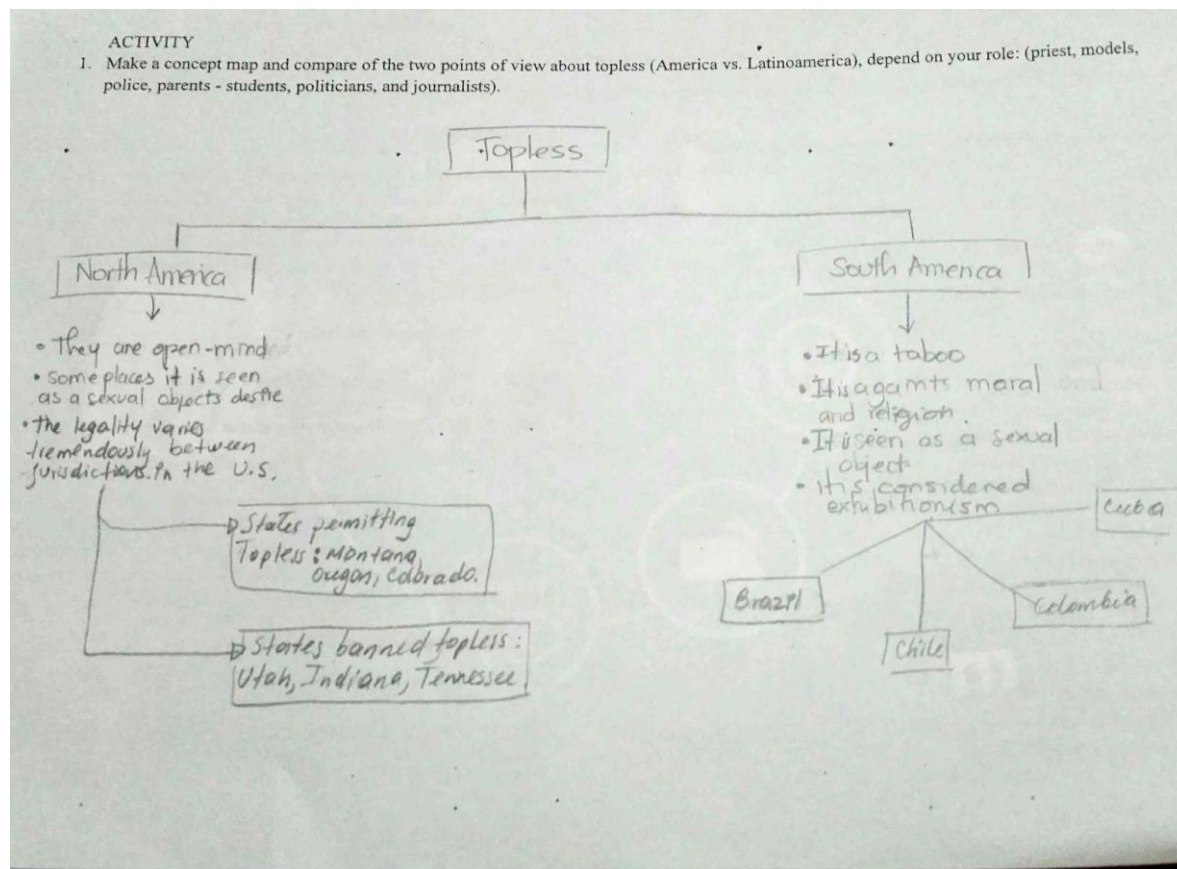 ACTIVITY
1. Make a concept map and compare of the two points of view about topless (America vs. Latinoamerica), depend on your role: (priest, models,
police, parents - students, politicians, and journalists).
Topless
North America
• They are open-mind
• some places it is seen
as a sexual objects
• the legality varies
tremendously between
jurisdictions. in the U.S.
States permitting
Topless: Montana,
Oregon, Colorado.
States banned topless:
Utah, Indiana, Tennessee
South America
• It is a taboo
• It is againts moral
and religion.
• It is seen as a sexual
object
• it is considered
exhubitionism
Cuba
Brazil
Colombia
Chile